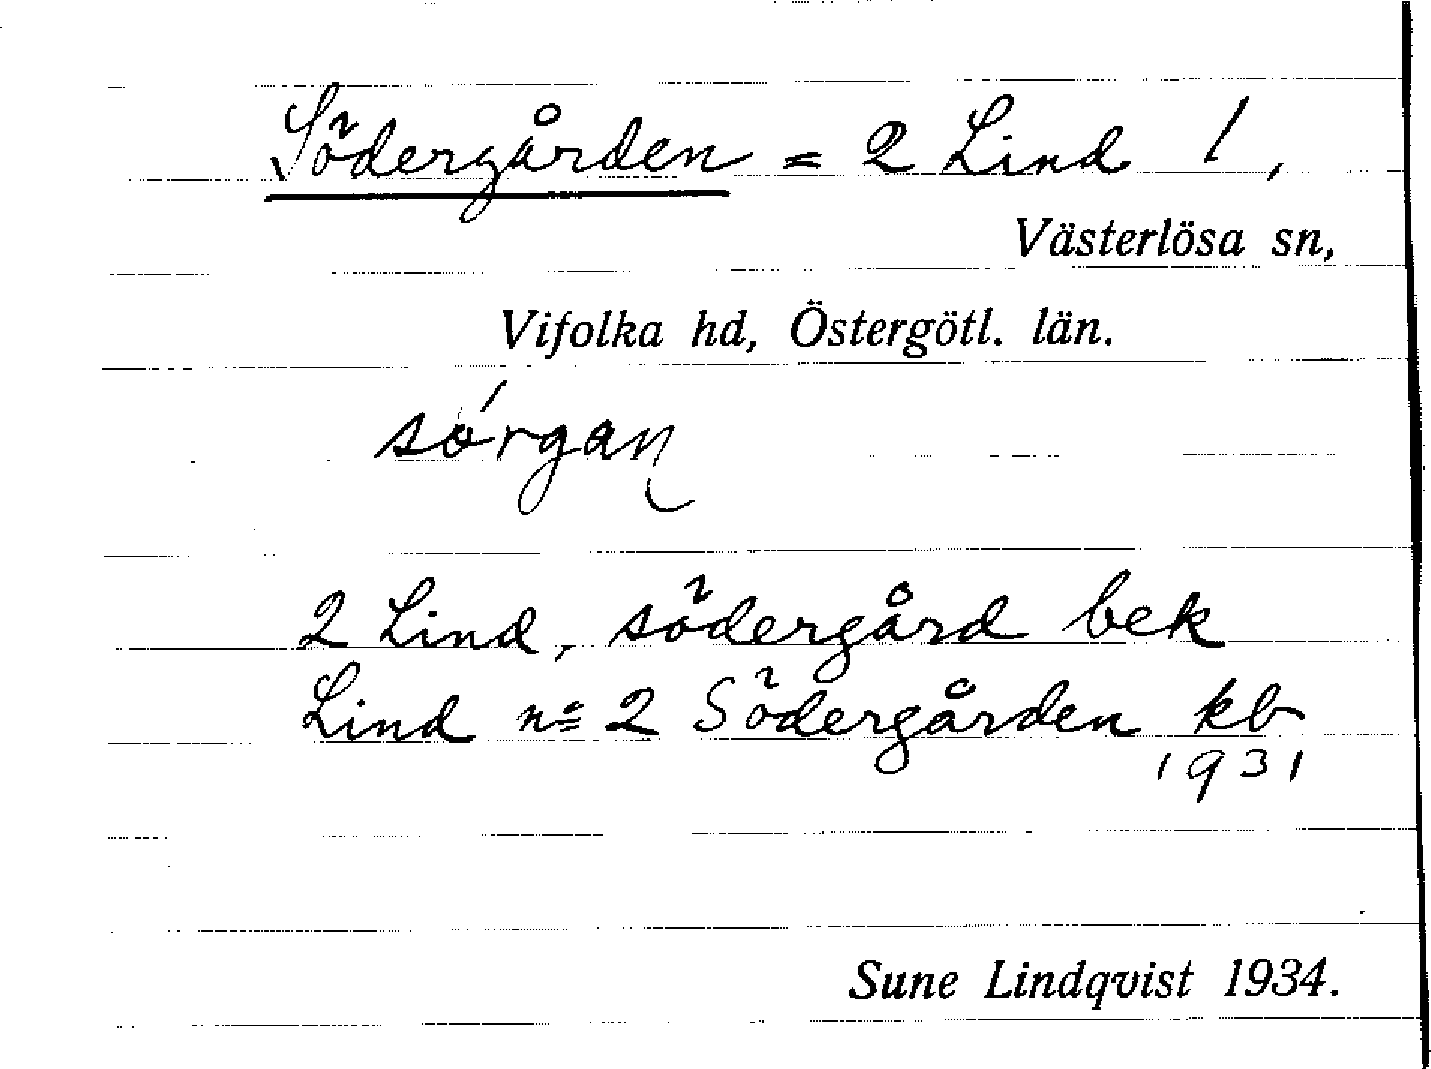 Södergården = 2 Lind !,
Västerlösa sn,
Vifolka hd, Östergötl. län.
sórgaɳ
2 Lind, södergård bek
Lind nº 2 Södergården kb
1931
Sune Lindqvist 1934.